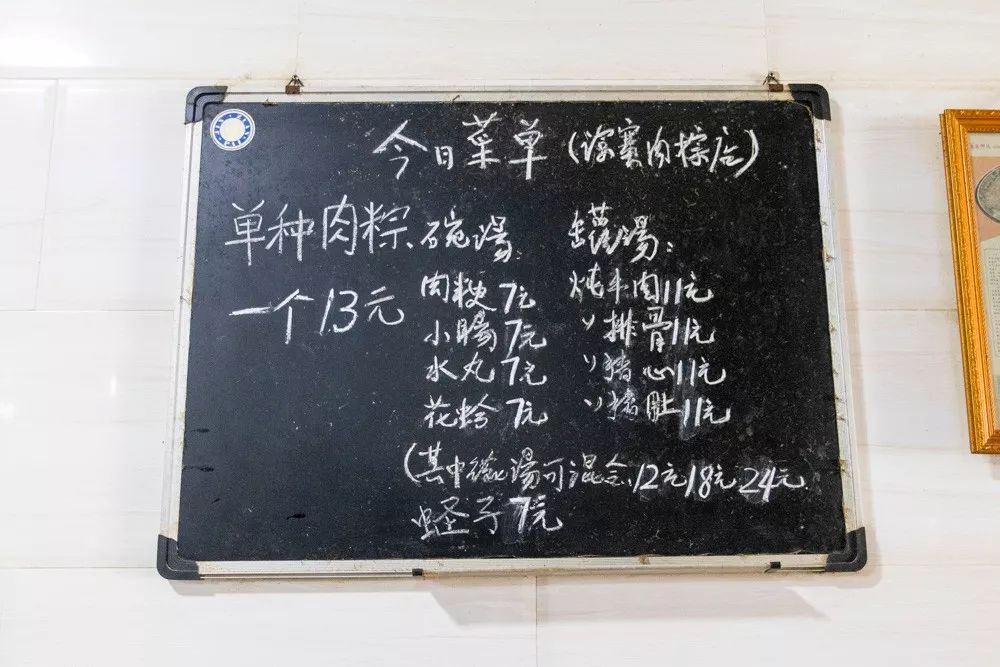 今日菜单(肉粽店)
单种肉粽
一个13元
碗湯:
肉粳 7元
小腸 7元
水丸 7元
花蛤 7元
罐湯:
炖牛肉11元
〃排骨11元
〃猪心11元
〃猪肚11元
(其中湯可混合,12元18元24元
蛏子7元